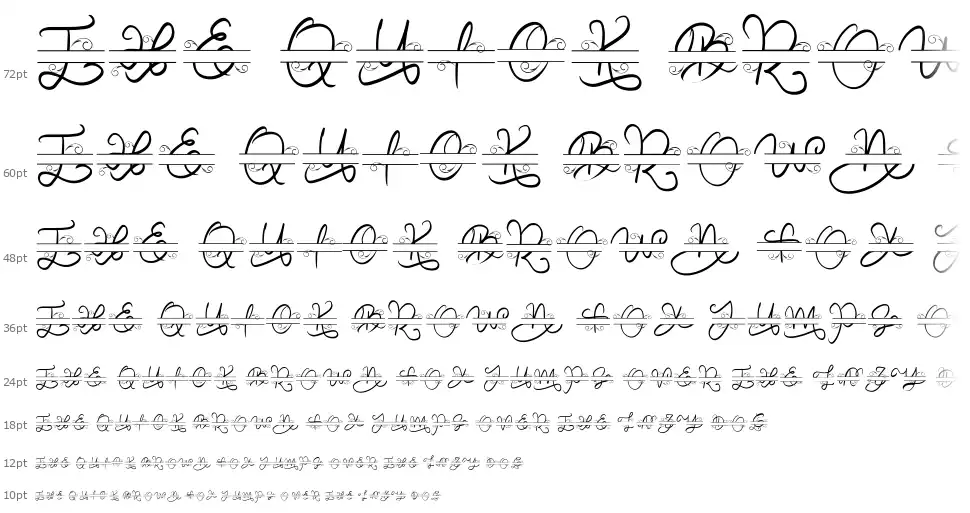 72pt THE QUICK BROW
60pt THE QUICK BROWN
48pt THE QUICK BROWN FOX
36pt THE QUICK BROWN FOX JUMPS O
24pt THE QUICK BROWN FOX JUMPS OVER THE LAZY D
18pt THE QUICK BROWN FOX JUMPS OVER THE LAZY DOG
12pt THE QUICK BROWN FOX JUMPS OVER THE LAZY DOG
10pt THE QUICK BROWN FOX JUMPS OVER THE LAZY DOG